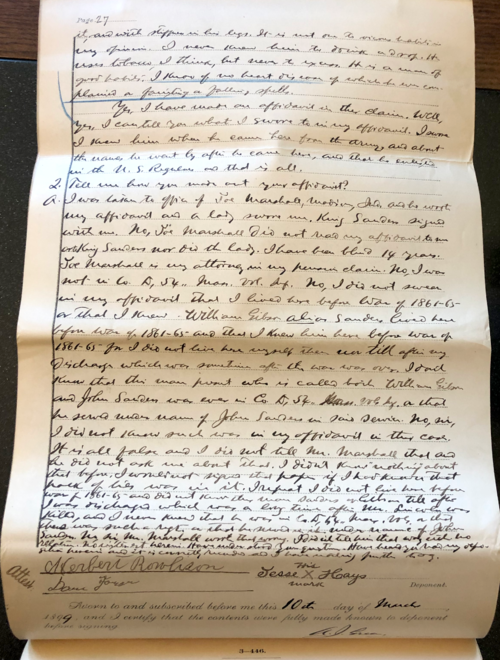 Page 27
it, and with stiffness in his legs. It is not due to vicious habits in
my opinion. I never knew him to drink a drop. He
uses tobacco, I think, but never to excess. He is a man of
good habits. I know of no heart disease of which he was com-
plained or fainting or falling spells.
Yes, I have made an affidavit in this claim. Well,
yes, I can tell you what I swore to in my affidavit. I swore
I knew him when he came here from the army, and about
the name he went by after he came here, and that he enlisted
in the U. S. Regulars and that is all.
Q. Tell me how you made out your affidavit?
A. I was taken to office of Joe Marshall, Madison, Ind. and he wrote
my affidavit and a lady swore me. King Sanders signed
with me. No, Joe Marshall did not read my affidavit to me
or King Sanders nor did the lady. I have been blind 14 years.
Joe Marshall is my attorney in my pension claim. No, I was
not in Co. D, 54 Mass. Vol. Inf. No, I did not swear
in my affidavit that I lived here before war of 1861-65
or that I knew William Gibson alias Sanders lived here
before war of 1861-65 and that I knew him here before war of
1861-65 for I did not live here myself then nor till after my
discharge which was sometime after the war was over. I don't
know that this man present who is called both William Gibson
and John Sanders was ever in Co D, 54 Mass. Vol Inf. or that
he served under name of John Sanders in said service. No, sir,
I did not know such was in my affidavit in this case.
It is all false and I did not tell Mr. Marshall that and
he did not ask me about that. I didn't know nothing about
that before. I would not signed that paper if I had known that
pack of lies was in it. In fact I did not live here before
war of 1861-65 and did not know this man Sanders or Gibson till after
my discharge which was a long time after Mr. Lincoln was
killed and I never knew that he was in Co D, 54 Mass. Vol, or that
there was such a regt. or that he served under name of John
Sanders. No sir, Mr. Marshall wrote that wrong.
Attest
Herbert Rowlison
his
Jesse X Hays
mark
Deponent.
Sworn to and subscribed before me this 10th day of March
1899, and I certify that the contents were fully made known to deponent
before signing
3-446.